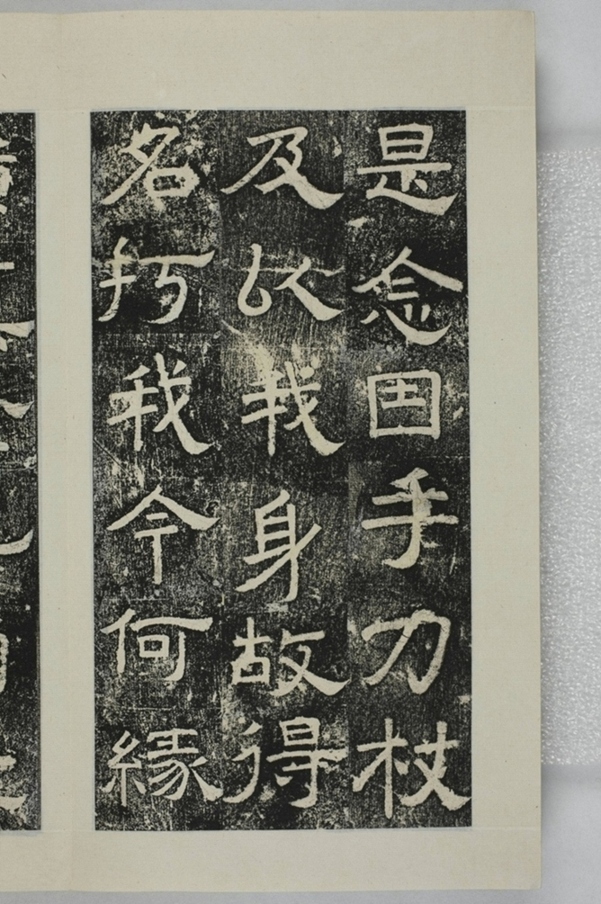 是念因手刀杖
及以我身故得
名打我今何緣